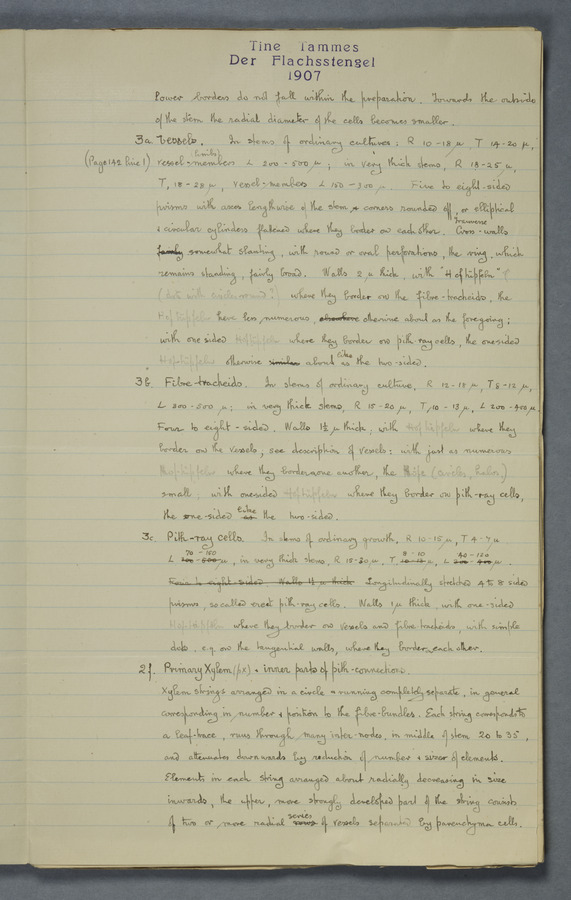 Tine Tammes
Der Flachsstengel
1907
Power borders do not fall within the preparation. Towards the outside
of the stem the radial diameter of the cells becomes smaller.
3a. Vessels. In stems of ordinary cultures: R 10-18 µ, T 14-20 µ,
(Page 142 line 1) vessel-members L 200-500 µ; in very thick stems, R 18-25 µ,
T, 18-28 µ, vessel-members L 150-300 µ. Five to eight-sided
prisms with axes lengthwise of the stem & corners rounded off, or elliptical
& circular cylinders flattened where they border on each other. Cross-walls transverse
fairly somewhat slanting, with round or oval perforations, the ring, which
remains standing, fairly broad. Walls 2 µ thick, with "Hoftüpfeln"
where they border on the fibre-tracheids, the
Hoftüpfeln here less numerous, elsewhere otherwise about as the foregoing;
with one sided Hoftüpfeln where they border on pith-ray cells, the onesided
Hoftüpfeln otherwise similar about like as the two-sided.
3b. Fibre-tracheids. In stems of ordinary culture, R 12-18 µ, T 8-12 µ,
L 300-500 µ; in very thick stems, R 15-20 µ, T, 10-13 µ, L 200-400 µ.
Four to eight-sided. Walls 1½ µ thick, with Hoftüpfeln where they
border on the vessels, see description of vessels: with just as numerous
Hoftüpfeln where they border one another, the (circles, halos,)
small, with onesided Hoftüpfeln where they border on pith-ray cells,
the one-sided like as the two-sided.
3c. Pith-ray cells. In stems of ordinary growth, R 10-15 µ, T 4-7 µ
L 70-150 µ, in very thick stems, R 15-30 µ, T 8-10 µ, L 40-120 µ.
Four to eight-sided Walls 1½ µ thick Longitudinally stretched 4 to 8 sided
prisms, so called erect pith-ray cells. Walls 1 µ thick, with one-sided
where they border on vessels and fibre tracheids, with simple
dots, e.g. on the tangential walls, where they border each other.
2f. Primary Xylem (px) & inner parts of pith-connections.
Xylem strings arranged in a circle & running completely separate, in general
corresponding in number & position to the fibre-bundles. Each string corresponds to
a leaf-trace, runs through many inter-nodes, in middle of stem 20 to 35,
and attenuates downwards by reduction of number & sizes of elements.
Elements in each string arranged about radially decreasing in size
inwards, the upper, more strongly developed part of the string consists
of two or more radial series rows of vessels separated by parenchyma cells.